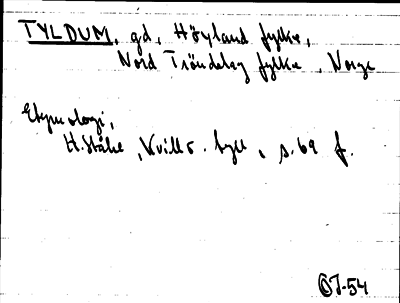 TYLDUM, gd, Höyland fylke,
Nord Tröndelag fylke, Norge
Etymologi,
H. Ståhl, Kvill o. byll, s. 69 f.
OJ-54